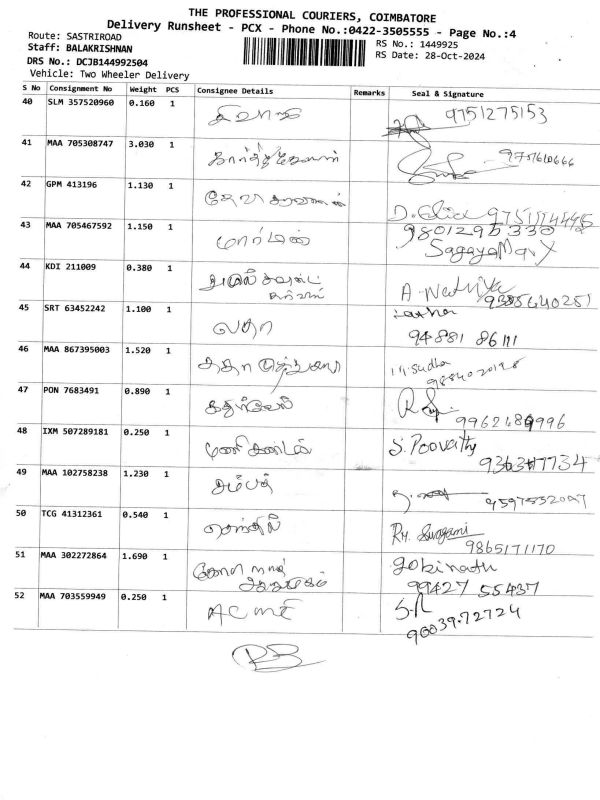 THE PROFESSIONAL COURIERS, COIMBATORE
Delivery Runsheet - PCX - Phone No.:0422-3505555 - Page No.:4
Route: SASTRIROAD
RS No.: 1449925
Staff: BALAKRISHNAN
RS Date: 28-Oct-2024
DRS No.: DCJB144992504
Vehicle: Two Wheeler Delivery
S No Consignment No Weight PCS Consignee Details Remarks Seal & Signature
40 SLM 357520960 0.160 1 9751275153
41 MAA 705308747 3.030 1
42 GPM 413196 1.130 1
43 MAA 705467592 1.150 1 மார்டின் 9801295330
Sagayamary
44 KDI 211009 0.380 1 A. Nathiya 9385640251
45 SRT 63452242 1.100 1 லதா Latha
94881 86111
46 MAA 867395003 1.520 1 Sudha
9884020198
47 PON 7683491 0.890 1 கதிர்வேல்
9962489996
48 IXM 507289181 0.250 1 மணிகண்டன் S. Poovathy
49 MAA 102758238 1.230 1 சம்பத் 9597552097
50 TCG 41312361 0.540 1 செந்தில்
9865171170
51 MAA 302272864 1.690 1 gobinath
99427 55437
52 MAA 703559949 0.250 1 ACME S.R
90039.72724